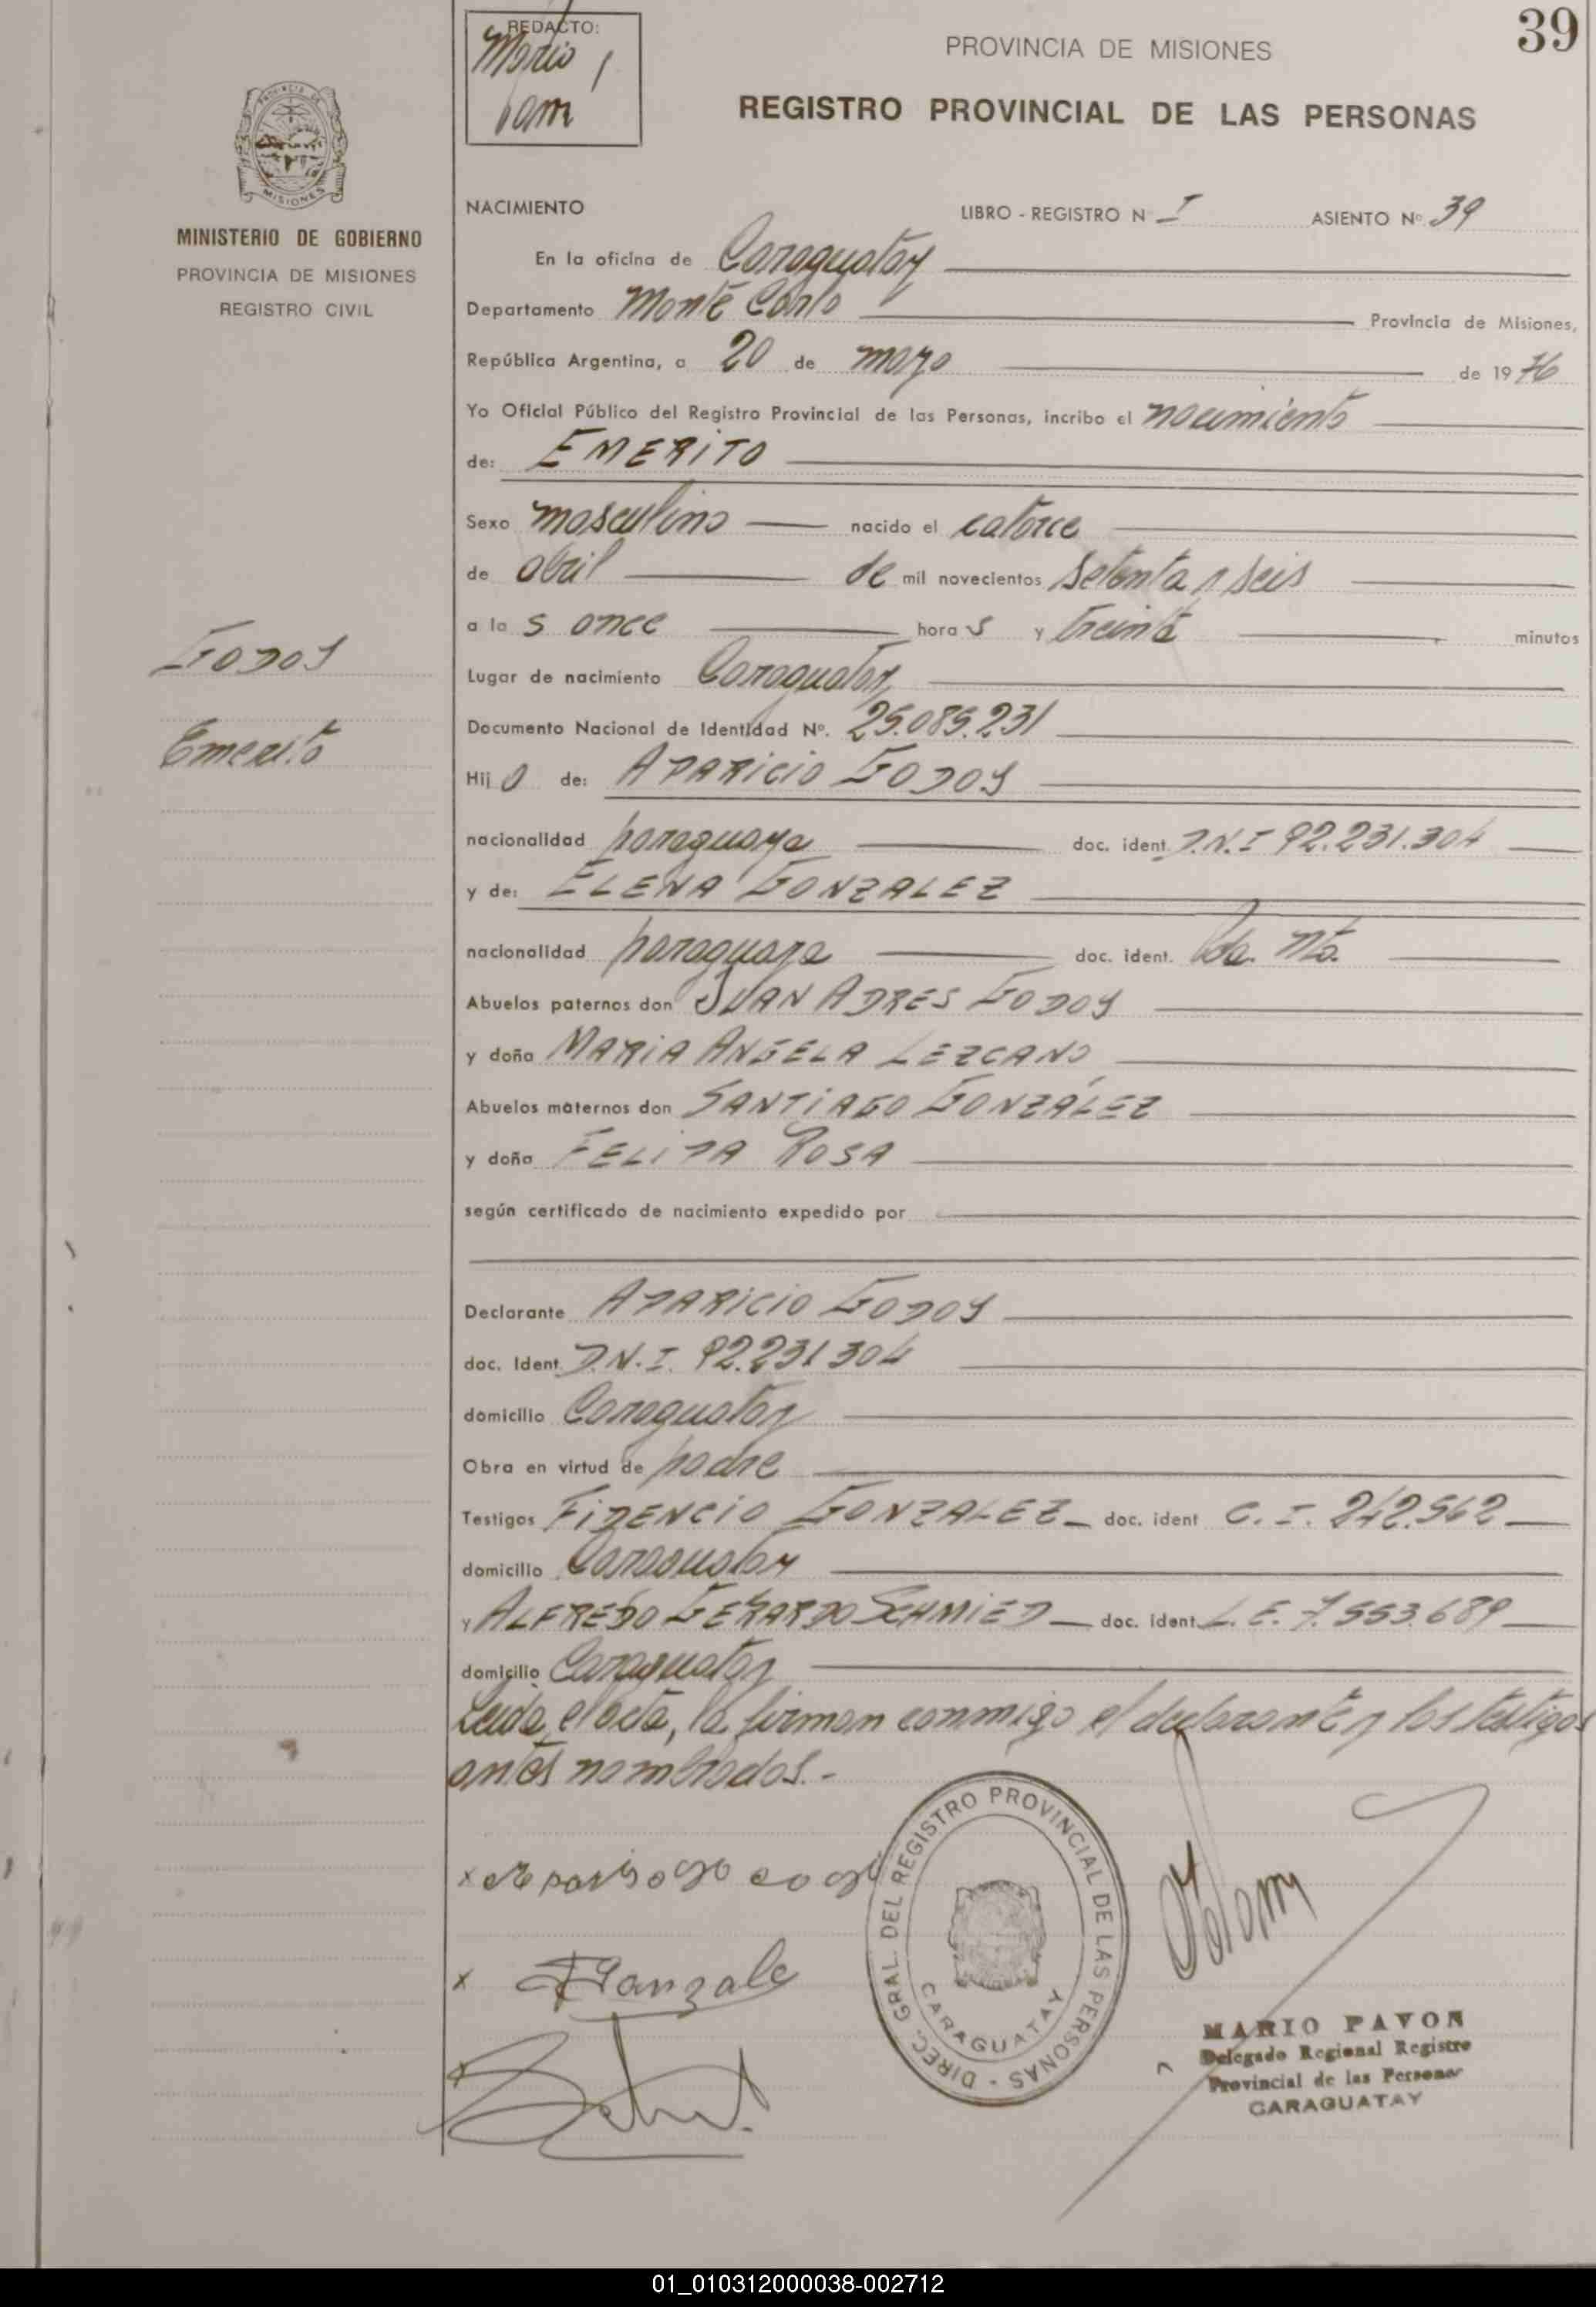 39
REDACTO:
Mario
Pavon
PROVINCIA DE MISIONES
REGISTRO PROVINCIAL DE LAS PERSONAS
MISIONES
MINISTERIO DE GOBIERNO
PROVINCIA DE MISIONES
REGISTRO CIVIL
NACIMIENTO LIBRO - REGISTRO Nº I ASIENTO Nº 39
En la oficina de Caraguatay
Departamento Monte Carlo Provincia de Misiones,
República Argentina, a 20 de mayo de 1976
Yo Oficial Público del Registro Provincial de las Personas, incribo el nacimiento
de: EMERITO
Sexo masculino nacido el catorce
de abril de mil novecientos setenta y seis
a las once horas y treinta minutos
Godoy
Lugar de nacimiento Caraguatay
Emerito
Documento Nacional de Identidad Nº. 25.085.231
Hijo de: APARICIO GODOY
nacionalidad paraguaya doc. ident. D.N.I 92.231.304
y de: ELENA GONZALEZ
nacionalidad paraguaya doc. ident.
Abuelos paternos don JUAN ADRES GODOY
y doña MARIA ANGELA LEZCANO
Abuelos maternos don SANTIAGO GONZÁLEZ
y doña FELIPA ROSA
según certificado de nacimiento expedido por
Declarante APARICIO GODOY
doc. Ident. D.N.I. 92.231304
domicilio Caraguatay
Obra en virtud de padre
Testigos FIDENCIO GONZALEZ doc. ident C.I. 242.562
domicilio Caraguatay
y ALFREDO GERARDO SCHMIED doc. ident. L.E. 7.553.689
domicilio Caraguatay
Leida el acta, la firman conmigo el declarante y los testigos
antes nombrados.-
x
x Gonzale
x
DIREC. GRAL. DEL REGISTRO PROVINCIAL DE LAS PERSONAS -
CARAGUATAY
MARIO PAVON
Delegado Regional Registro
Provincial de las Personas
CARAGUATAY
01_010312000038-002712